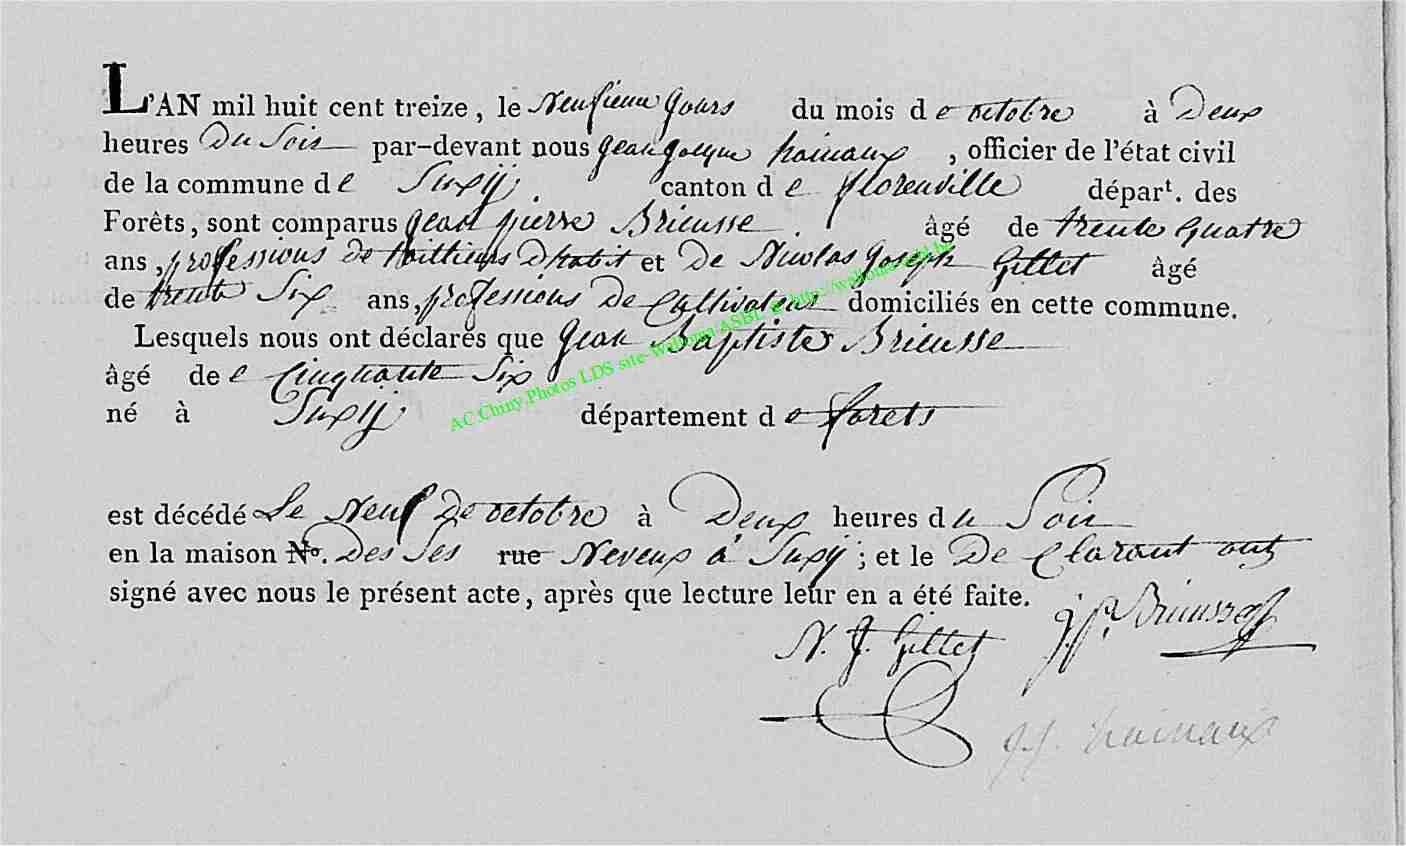 L'AN mil huit cent treize, le Neufieme Jours du mois de octobre à Deux
heures Du Soir par-devant nous Jean Jacque hainaux, officier de l'état civil
de la commune de Suxÿ canton de florenville dépar<sup>t</sup>. des
Forêts, sont comparus Jean pierre Brieusse âgé de trente quatre
ans, professions de taillieurs D'habit et De Nicolas Joseph Gillet âgé
de trente Six ans, professions De Cultivateur domiciliés en cette commune.
Lesquels nous ont déclarés que Jean Baptiste Brieusse
âgé de e Cinquante Six
né à Suxÿ département de forets
est décédé Le Neuf De octobre à Deux heures du Soir
en la maison No. Des Ses rue Neveux a Suxÿ; et le De Clarant ont
signé avec nous le présent acte, après que lecture leur en a été faite.
N. J. Gillet J. P. Brieusse
J J. hainaux
AC.Chiny.Photos LDS site-Wallonia ASBL